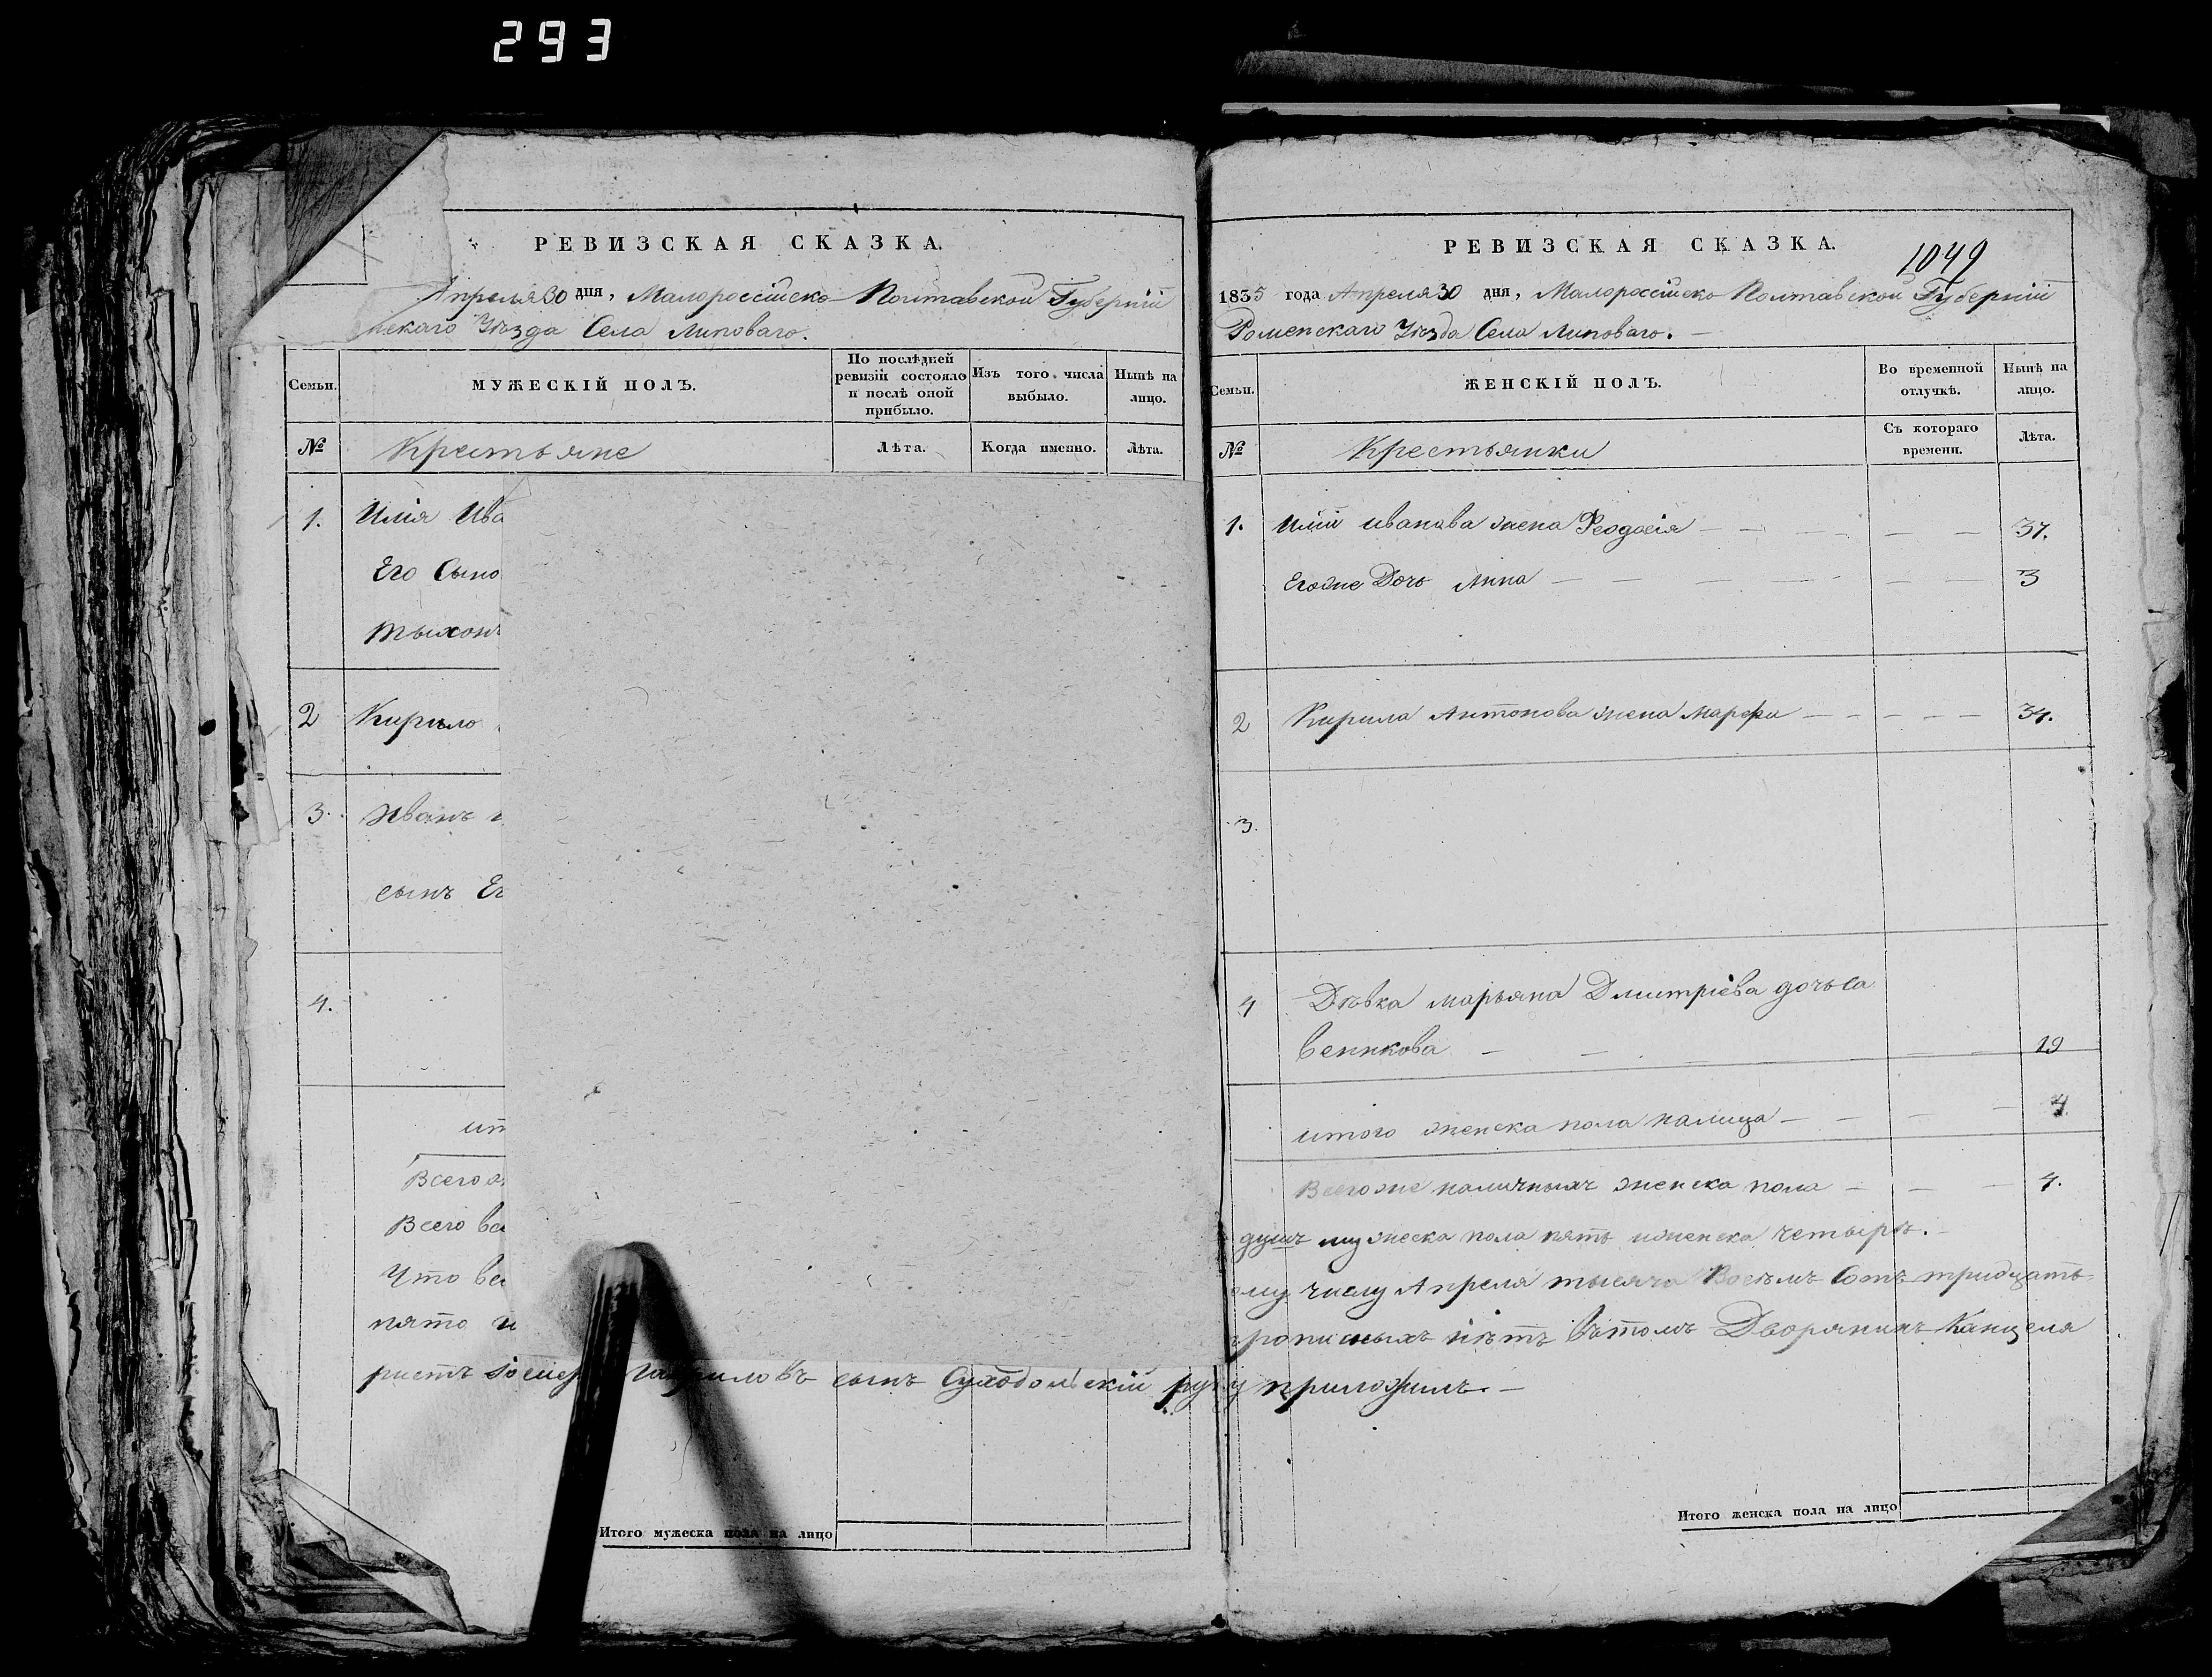 293
РЕВИЗСКАЯ СКАЗКА.
Апреля 30 дня, Малороссійско Полтавской Губерніи
нскаго Уѣзда Села Липоваго.
Семьи.
МУЖЕСКІЙ ПОЛЪ.
По послѣдней ревизіи состояло и послѣ оной прибыло.
Изъ того числа выбыло.
Нынѣ на лицо.
№
Крестьяне
Лѣта.
Когда именно.
Лѣта.
1. Илія Ива
Его Сыно
Тыхонъ
2 Кирило
3. Иванъ
сынъ Ег
4.
ит
Всего
Всего
Что
пято и
ристъ Іосиф Гавриловъ сынъ Суходольскій руку приложилъ.
Итого мужеска пола на лицо
1049
РЕВИЗСКАЯ СКАЗКА.
1835 года Апреля 30 дня, Малороссійско Полтавской Губерніи
Роменскаго Уѣзда Села Липоваго.
Семьи.
ЖЕНСКІЙ ПОЛЪ.
Во временной отлучкѣ.
Нынѣ на лицо.
№
Крестьянки
Съ котораго времени.
Лѣта.
1. Иліи иванова жена Феодосія 37.
Егоже Дочь Анна 3
2 Кирила Антонова жена марфа 34.
3.
4 Дѣвка марьяна Дмитріева дочь Са
венкова 19
итого женска пола налицо 4
Всегоже наличныхъ женска пола 4.
душъ мужеска пола пять иженска четырѣ.
ому числу Апреля тысяча Восѣмъ Сотъ тридцать
прописныхъ нѣтъ вътомъ Дворянинъ Канцеля
Итого женска пола на лицо